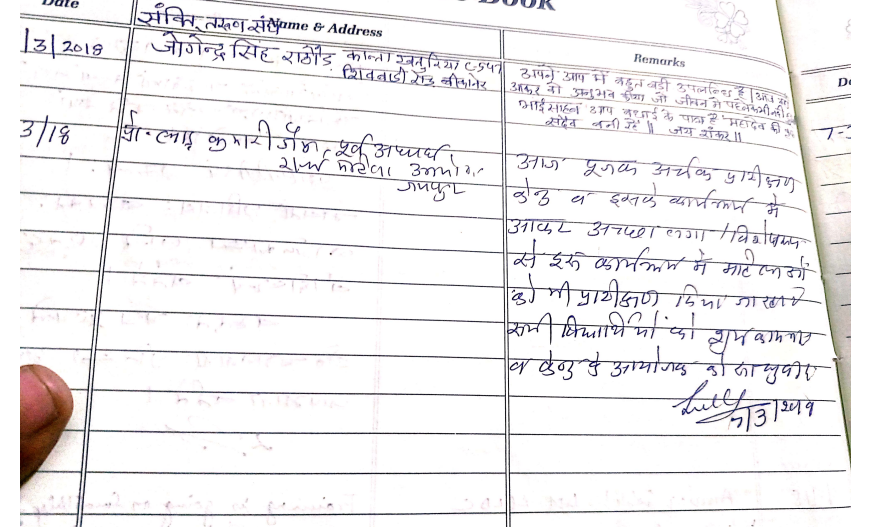 Date
BOOK
Name & Address
Remarks
संक्ति, तरूण संघ
/3/2018
जोगेन्द्र सिंह राठौड़ कान्ता खतुरिया C-547
शिवबाडी रोड बीकानेर
आपने आप में बहुत बडी उपलब्धि है। आज यहां
आकर वो अनुभव किया जो जीवन में पहले कभी नहीं
भाईसाहब आप बधाई के पात्र है महादेव की
सदैव बनी रहें ॥ जय शंकर ॥
3/18
प्रो. लाड कुमारी जैन, पूर्व अध्यक्ष
राज्य महिला आयोग
जयपुर
आज पूजक अर्चक प्रशिक्षण
केन्द्र व इसके कार्यक्रम में
आकर अच्छा लगा / विशेषरूप
से इस कार्यक्रम में महिलाओं
को भी प्रशिक्षण दिया जा रहा है
सभी विद्यार्थियों को शुभकामनाएं
व केन्द्र के आयोजक को साधुवाद
7/3/2018
7-3